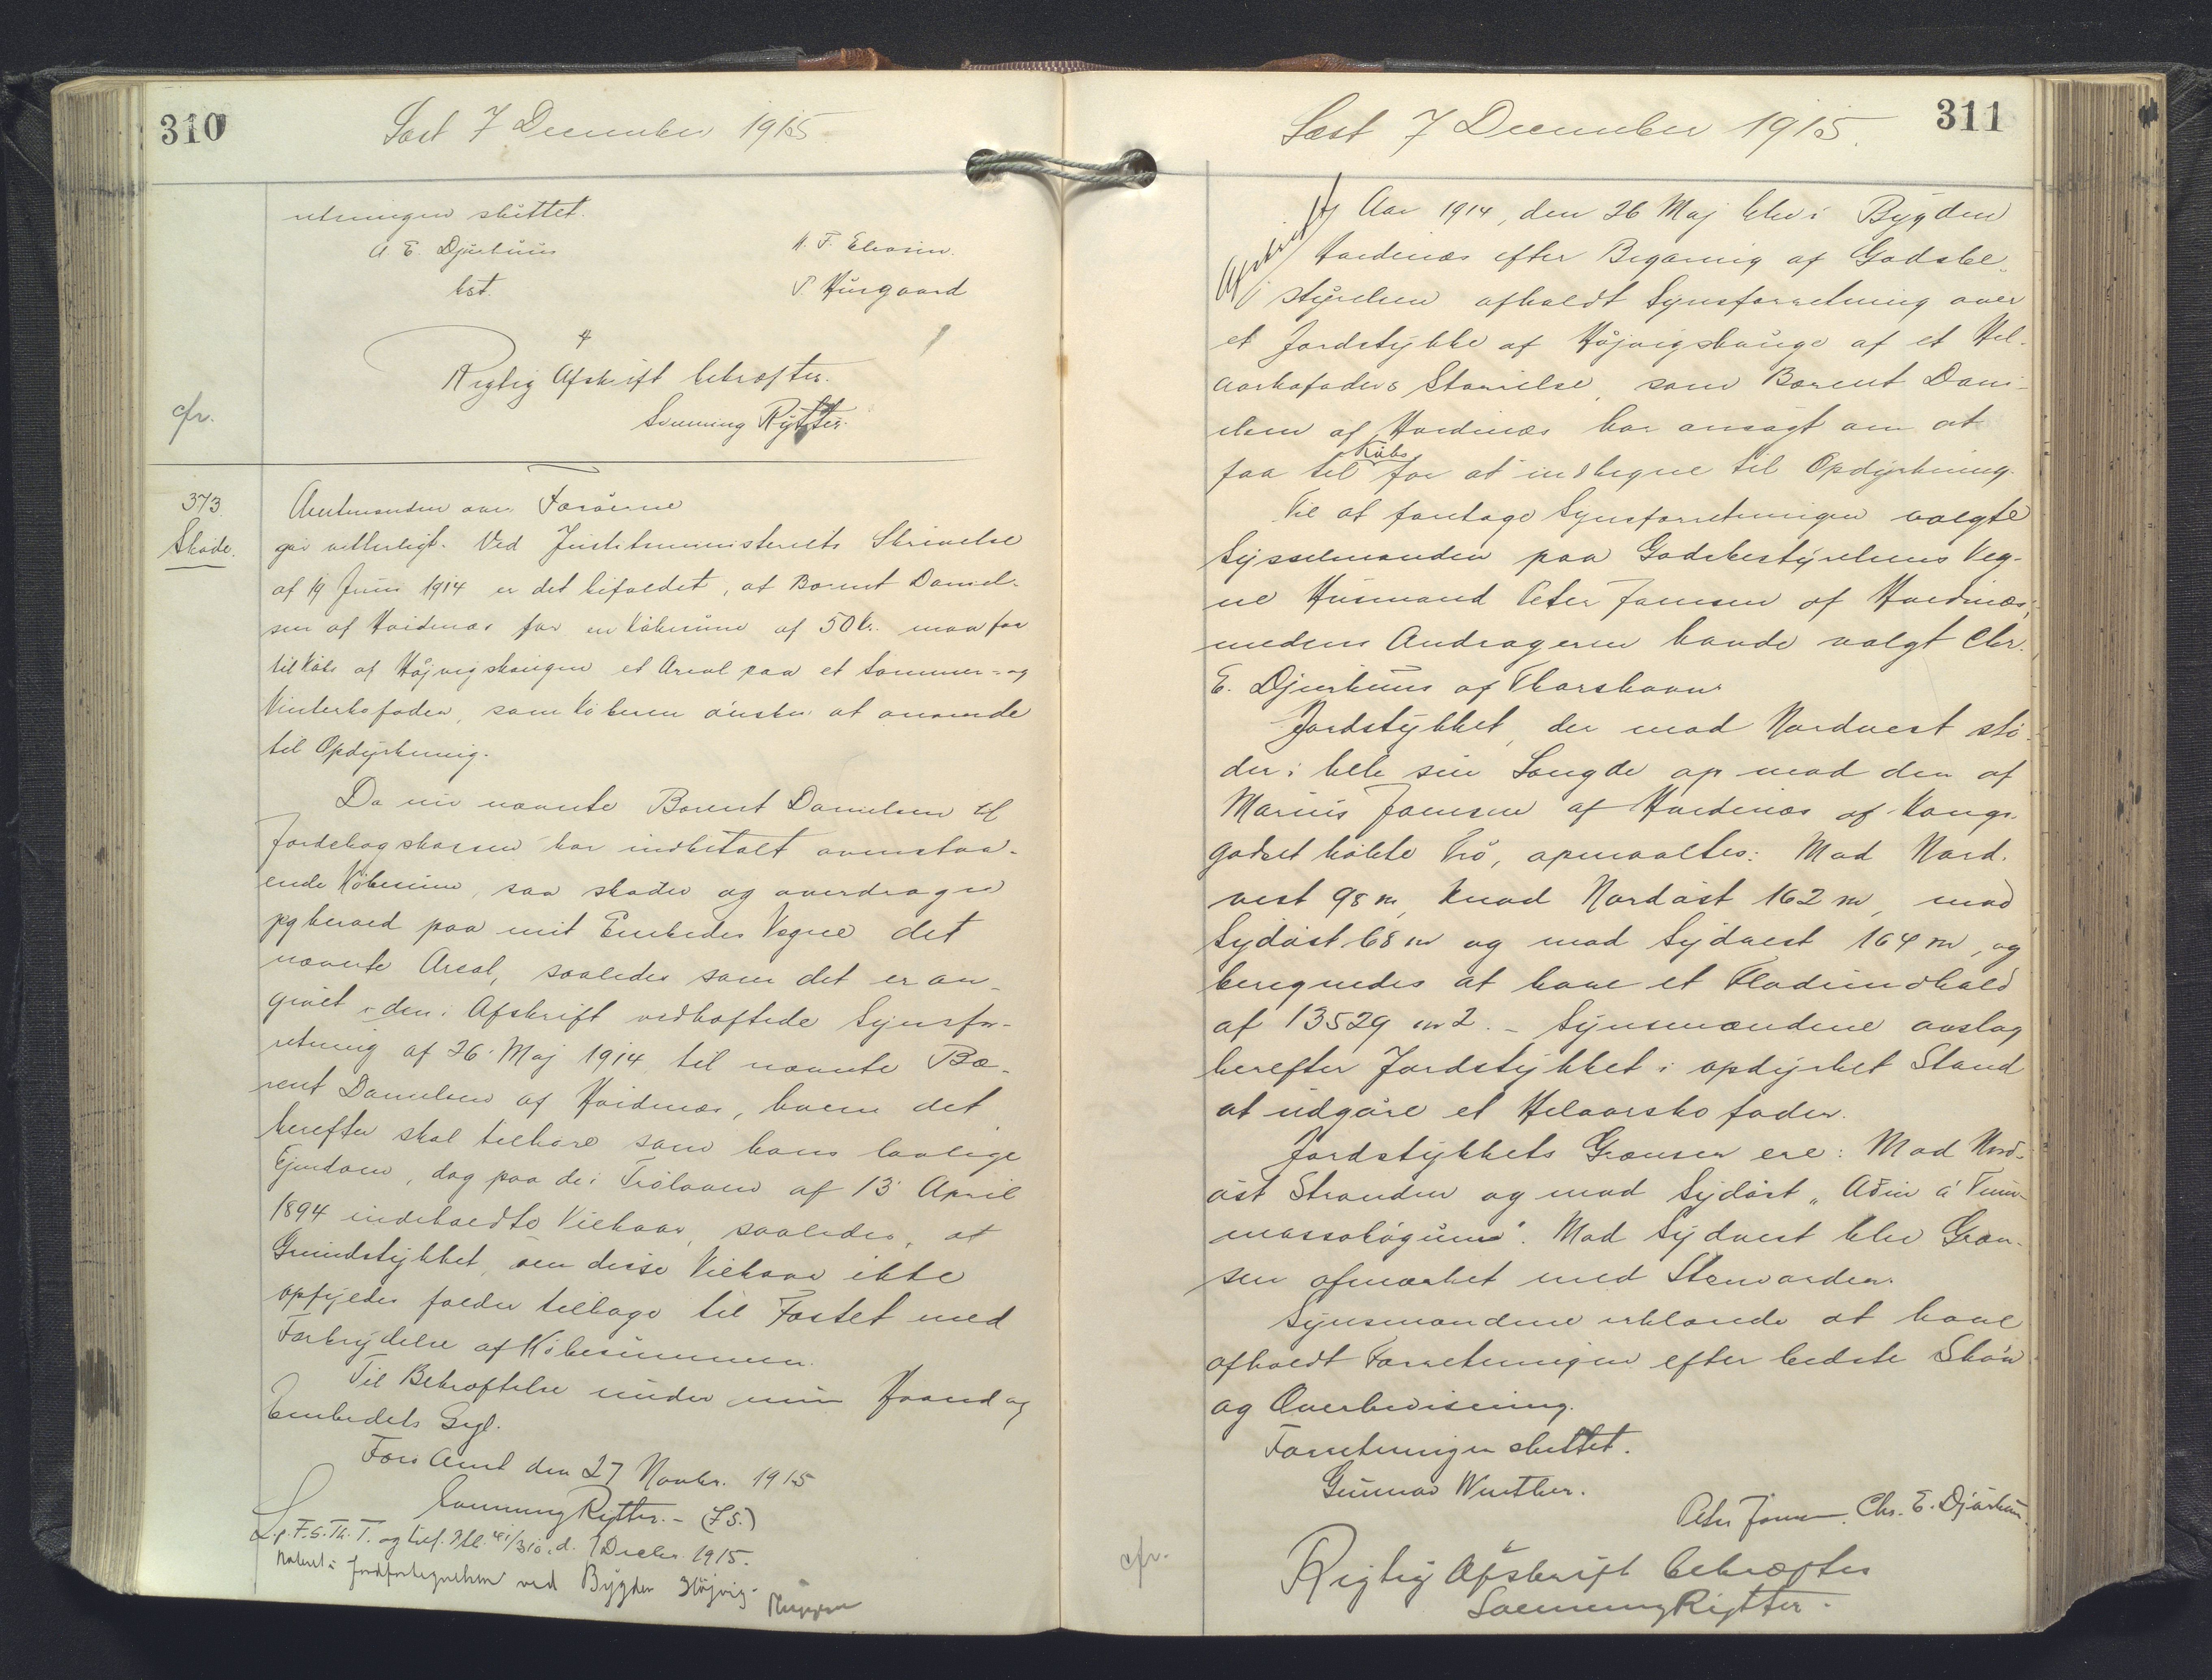 310
Læst 7 December 1915
retningen sluttet.
A. E. Djurhuus
kst.
P. Husgaard
Rigtig Afskrift bekræftes.
Svenning Rytter.
cfr.
373.
Skøde.
Amtmanden over Færøerne
gør vitterligt: Ved Justitsministeriets Skrivelse
af 19 Juni 1914 er det bifaldet, at Barent Daniel-
sen af Hvidenæs for en Købesum af 50 Kr. maa faa
til Købs af Højvigshaugen et Areal paa et Sommer- og
Vinterkofoder, som Køberen ønsker at anvende
til Opdyrkning.
Da nu nævnte Barent Danielsen til
Jordebogskassen har indbetalt ovenstaa-
ende Købesum, saa skøder og overdrager
jeg herved paa mit Embedes Vegne det
nævnte Areal, saaledes som det er an-
givet i den i Afskrift vedhæftede Synsfor-
retning af 26 Maj 1914 til nævnte Ba-
rent Danielsen af Hvidenæs, hvem det
herefter skal tilhøre som hans lovlige
Ejendom, dog paa de i Trøloven af 13 April
1894 indeholdte Vilkaar, saaledes, at
Grundstykket, om disse Vilkaar ikke
opfyldes falder tilbage til Fæstet med
Forbrydelse af Købesummen.
Til Bekræftelse under min Haand og
Embedets Segl.
Færø Amt den 27 Novbr. 1915
Svenning Rytter. - (L.S.)
L. p. F. S. Th. T. og tilf. Fol. d. 7 Decbr. 1915.
Noteret i Jordfortegnelsen ved Bygden Højvig.
311
Læst 7 December 1915.
Afskrift
Aar 1914, den 26 Maj blev i Bygden
Hvidenæs efter Begæring af Godsbe-
styrelsen afholdt Synsforretning over
et Jordstykke af Højvigshauge af et Hel-
aarkofoders Størrelse, som Barent Dani-
elsen af Hvidenæs har ansøgt om at
faa til Købs for at indhegne til Opdyrkning.
Til at foretage Synsforretningen valgte
Sysselmanden paa Godsbestyrelsens Veg-
ne Husmand Peter Joensen af Hvidenæs,
medens Andrageren havde valgt Chr.
E. Djurhuus af Thorshavn.
Jordstykket, der mod Nordvest stø-
der i hele sin Længde op mod den af
Marius Joensen af Hvidenæs af Konge-
godset købte Trø, opmaaltes: Mod Nord-
vest 98 m, mod Nordøst 162 m, mod
Sydøst 68 m og mod Sydvest 164 m, og
beregnedes at have et Fladeindhold
af 13529 m2. - Synsmændene anslog
herefter Jordstykket i opdyrket Stand
at udgøre et Helaarskofoder.
Jordstykkets Grænser ere: Mod Nord-
øst Stranden og mod Sydøst
Mod Sydvest blev Græn-
sen afmærket med Stenvarder.
Synsmændene erklærede at have
afholdt Forretningen efter bedste Skøn
og Overbevisning.
Forretningen sluttet.
Gunnar Winther.
Peter Joensen. Chr. E. Djurhuus.
cfr.
Rigtig Afskrift bekræftes
Svenning Rytter.